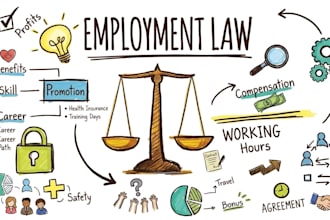 Profits
EMPLOYMENT LAW
Benefits
Skill
Promotion
• Health Insurance
• Training Days
Career
Career
Career
Path
Compensation
WORKING
Hours
Safety
Travel
Bonus
AGREEMENT